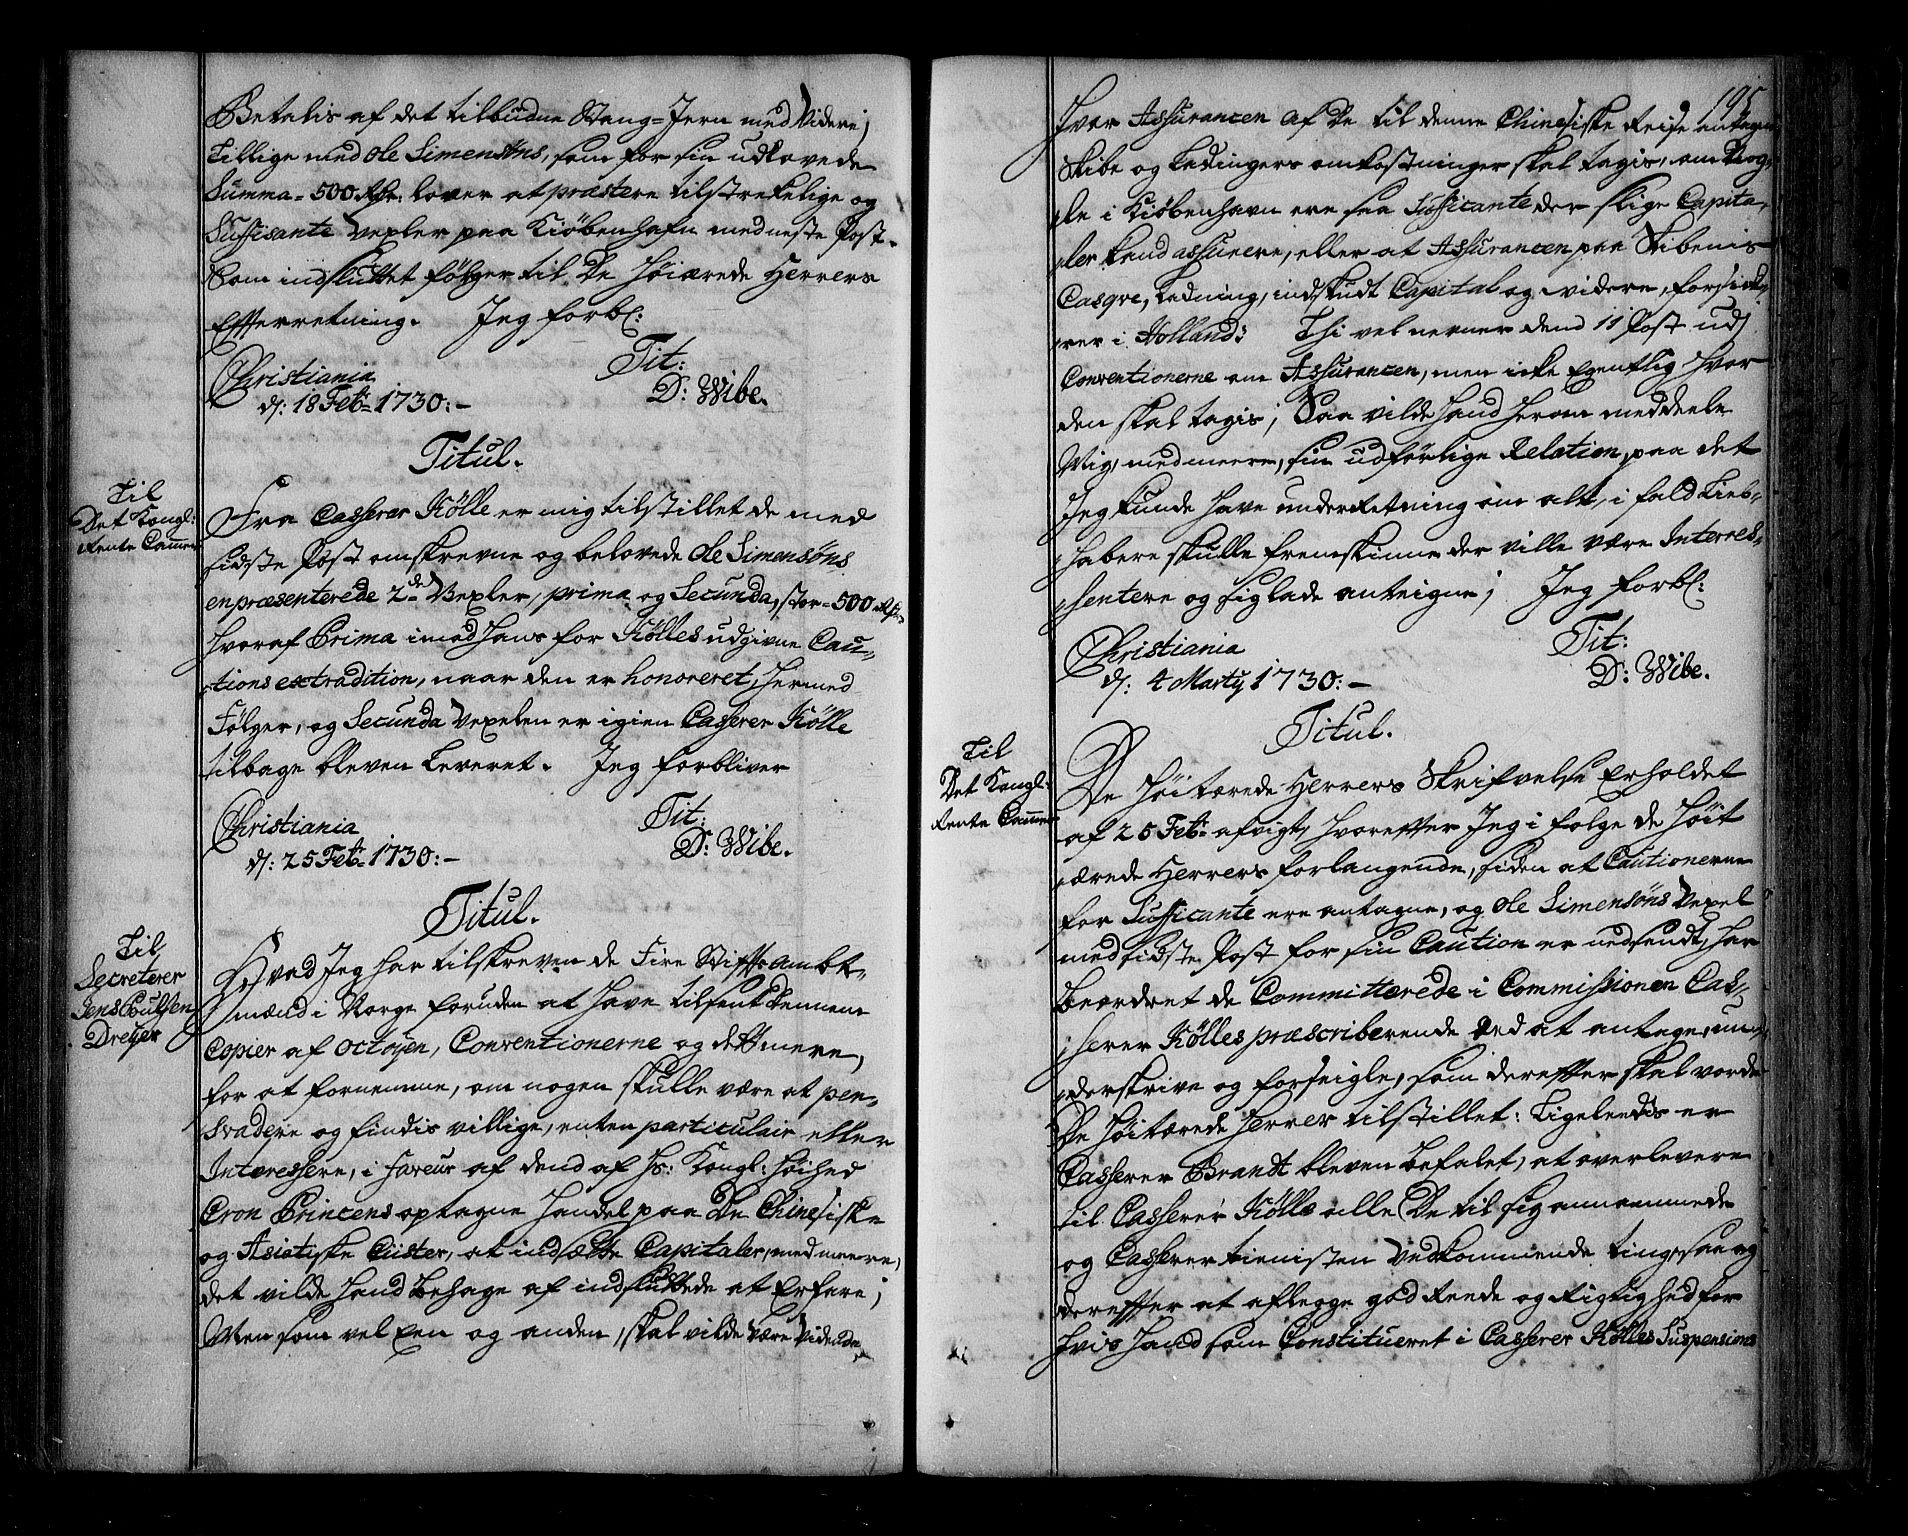 Betalis af det tilbudne Stang-Jern med Videre;
Tillige med Ole Simensøns, som for sin udlovede
Summa = 500 Rdr: lover at præstere tilstrekelige og
Suffisante Vexler paa Kiøbenhafn med neste Post.
Som indsluttet følger til De Høiærede Herrers
Efterretning. Jeg forbl:
Tit:
Christiania
d: 18 Feb: 1730:-
D: Wibe.
Titul.
Til
Det Kongl:
Rente Cammer
Fra Casserer Kølle er mig tilstillet de med
sidste Post omskrevne og belovede Ole Simensøns
enpræsenterede 2de Vexler, prima og Secunda, stor = 500 Rdr,
hvoraf Prima imod hans for Kølles udgivne Cau-
tions extradition, naar den er honoreret, hermed
Følger, og Secunda Vexelen er igien Casserer Kølle
tilbage bleven Leveret. Jeg forbliver
Tit:
Christiania
d: 25 Feb: 1730:-
D: Wibe.
Titul.
Til
Secreterer
Jens Poulsen
Dreyer
Hvad Jeg har tilskreven de Fire Stiftsambt-
mænd i Norge foruden at have tilsent dennem
Copier af Octoyen, Conventionerne og dett mere,
for at fornemme, om nogen skulle være at per-
svadere og findis villige, enten particulair eller
Interessere, i faveur af dend af Hs: Kongl: Høihed
Cron Princens optagne Handel paa De Chinesiske
og Asiatiske Cüster, at indsætte Capitaler, med meere,
det vilde hand Behage af indsluttede at Erfare;
Men som vel Een og anden, skal vilde være Vidende,
195.
Hvor Assurancen af De til denne Chinesiske Reise antagne
Skibe og Ladingers omkostninger skal tagis, om Nog-
le i Kiøbenhavn ere saa Sufficante der slige Capita-
ler kand assurere, eller at Assurancen paa Skibenis
Casqve, Ladning, indskudt Capital og videre, forsick-
rer i Holland; Thi vel nevner dend 11 Post udj
Conventionerne om Assurancen, men icke Egentlig hvor
den skal tagis; Saa vilde hand herom meddeele
Mig, med meere, sin udførlige Relation, paa det
Jeg kunde have underretning om alt, i fald Lieb-
habere skulle fremskinne der ville være Interres-
sentere og siglade anteigne; Jeg forbl:
Tit:
Christiania
d: 4 Marty 1730:-
D: Wibe.
Titul.
Til
Det Kongl:
Rente Cammer
De Høitærede Herrers Skrifvelse Erholdet
af 25 Feb: afvigt, hvorefter Jeg i følge de Høit
ærede Herrers forlangende, siden at Cautionerne
for Sufficante ere antagne, og Ole Simensøns Vexel
med sidste Post for sin Caution er nedsendt, har
beordret de Committerede i Commissionen Cas-
serer Kølles præscriberende Eed at antage, un-
derskrive og forseigle, som derefter skal vorde
De Høitærede Herrer tilstillet: Ligeleedis er
Casserer Brandt bleven befalet, at overlevere
til Casserer Kølle alle De til sig annammede
og Casserer tienisten Vedkommende ting, saa og
derefter at aflegge god Rende og Rigtighed for
hvis hand som Constitueret i Casserer Kølles Suspensions